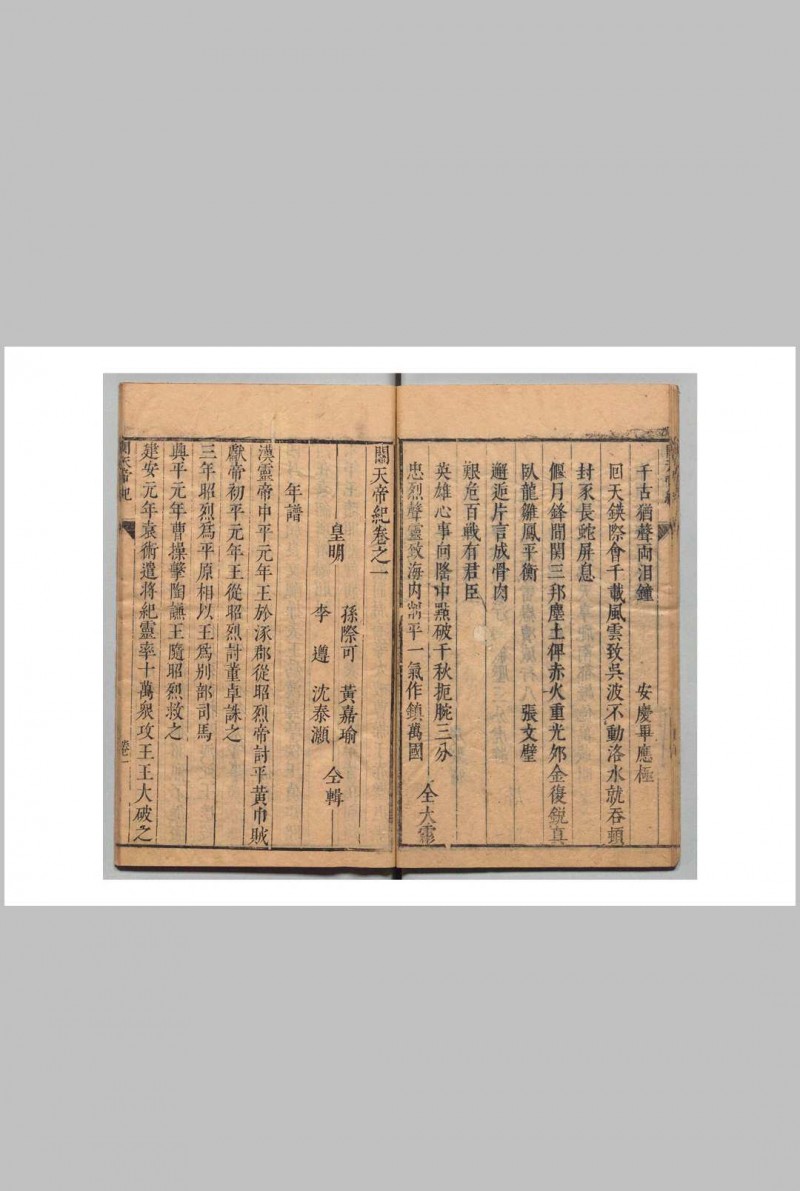 千古猶聲両泪鐘 安慶畢應極
回天鍈際會千載風雲致吳波不動洛水就吞頓
封豕長蛇屏息
偃月鋒間関三邦塵土俾赤火重光邜金復銳真
臥龍雛鳳平衡 張文璧
邂逅片言成骨肉
艱危百戰有君臣
英雄心事向陰中點破千秋扼腕三分
忠烈聲靈敫海內 平一氣作鎮萬國 仝大
關天帝紀卷之一
皇明
孫際可 黃嘉瑜
李遵 沈泰灝 仝輯
年譜
漢靈帝中平元年王於涿郡從昭烈帝討平黃巾賊
獻帝初平元年王從昭烈討董卓誅之
三年昭烈爲平原相以王爲別部司馬
興平元年曹操擊陶謙王隨昭烈救之
建安元年袁術遣將紀靈率十萬衆攻王王大破之
關天帝紀 卷一